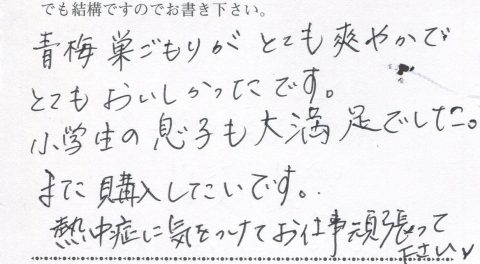 でも結構ですのでお書き下さい。
青梅巣ごもりが とても爽やかで
とてもおいしかったです。
小学生の息子も大満足でした。
また購入したいです。
熱中症に気をつけてお仕事頑張って
下さい